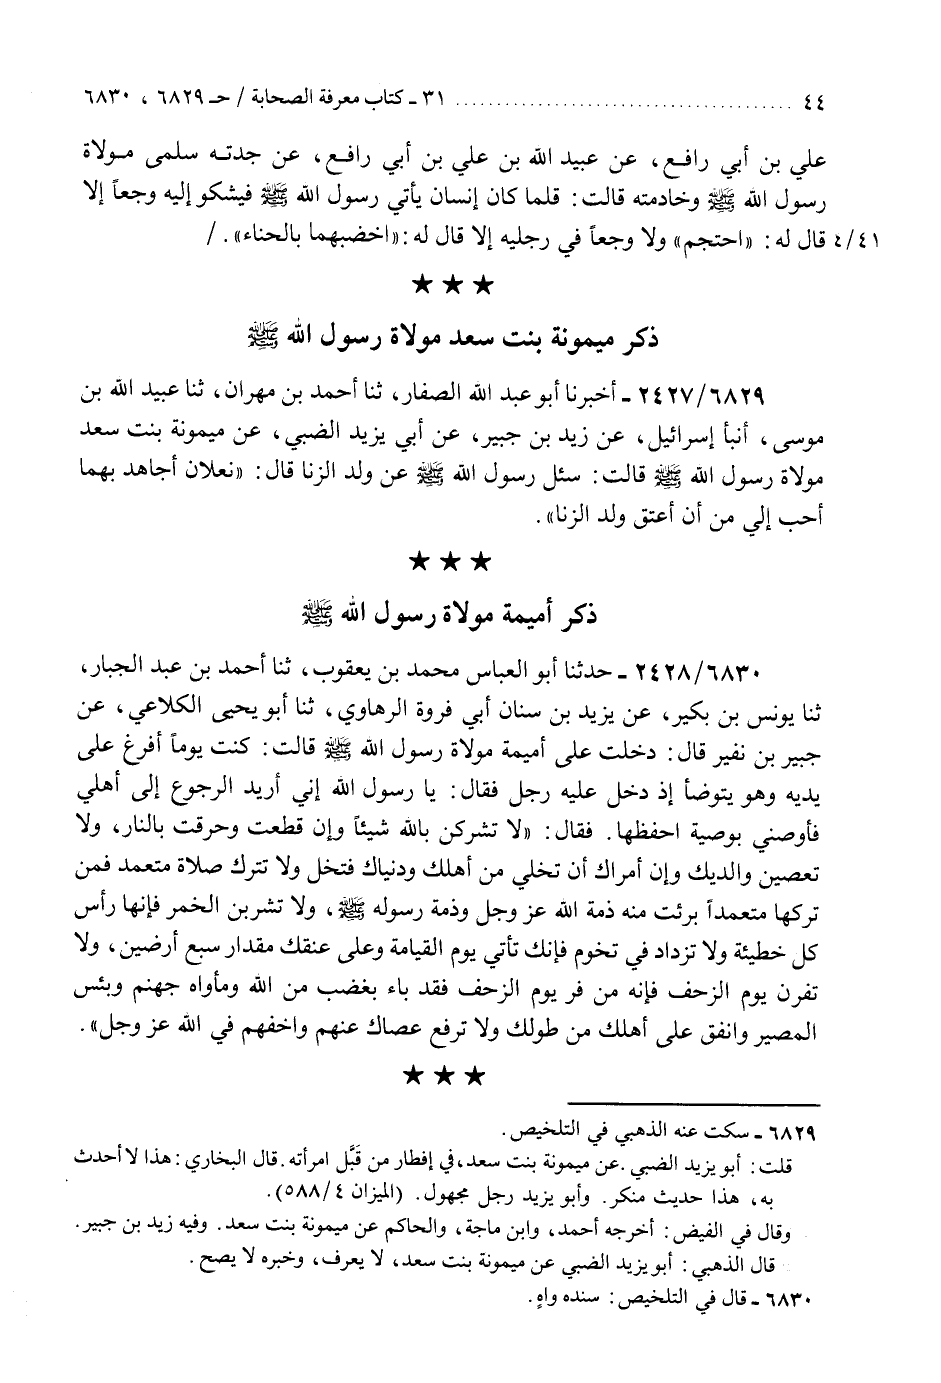 ٤٤ ........................................ ٣١ - كتاب معرفة الصحابة / حـ ٦٨٢٩ ، ٦٨٣٠
علي بن أبي رافع، عن عبيد الله بن علي بن أبي رافع، عن جدته سلمى مولاة
رسول الله ﷺ وخادمته قالت: قلما كان إنسان يأتي رسول الله ﷺ فيشكو إليه وجعاً إلا
٤/٤١ قال له: «احتجم» ولا وجعاً في رجليه إلا قال له: «اخضبهما بالحناء». /
★ ★ ★
ذكر ميمونة بنت سعد مولاة رسول الله ﷺ
٢٤٢٧/٦٨٢٩ - أخبرنا أبو عبد الله الصفار، ثنا أحمد بن مهران، ثنا عبيد الله بن
موسى، أنبأ إسرائيل، عن زيد بن جبير، عن أبي يزيد الضبي، عن ميمونة بنت سعد
مولاة رسول الله ﷺ قالت: سئل رسول الله ﷺ عن ولد الزنا قال: «نعلان أجاهد بهما
أحب إلي من أن أعتق ولد الزنا».
★ ★ ★
ذكر أميمة مولاة رسول الله ﷺ
٢٤٢٨/٦٨٣٠ - حدثنا أبو العباس محمد بن يعقوب، ثنا أحمد بن عبد الجبار،
ثنا يونس بن بكير، عن يزيد بن سنان أبي فروة الرهاوي، ثنا أبو يحيى الكلاعي، عن
جبير بن نفير قال: دخلت على أميمة مولاة رسول الله ﷺ قالت: كنت يوماً أفرغ على
يديه وهو يتوضأ إذ دخل عليه رجل فقال: يا رسول الله إني أريد الرجوع إلى أهلي
فأوصني بوصية احفظها. فقال: «لا تشركن بالله شيئاً وإن قطعت وحرقت بالنار، ولا
تعصين والديك وإن أمراك أن تخلي من أهلك ودنياك فتخل ولا تترك صلاة متعمد فمن
تركها متعمداً برئت منه ذمة الله عز وجل وذمة رسوله ﷺ، ولا تشربن الخمر فإنها رأس
كل خطيئة ولا تزداد في تخوم فإنك تأتي يوم القيامة وعلى عنقك مقدار سبع أرضين، ولا
تفرن يوم الزحف فإنه من فر يوم الزحف فقد باء بغضب من الله ومأواه جهنم وبئس
المصير وانفق على أهلك من طولك ولا ترفع عصاك عنهم واخفهم في الله عز وجل».
★ ★ ★
٦٨٢٩ - سكت عنه الذهبي في التلخيص.
قلت: أبو يزيد الضبي. عن ميمونة بنت سعد، في إفطار من قَبَّل امرأته. قال البخاري: هذا لا أحدث
به، هذا حديث منكر. وأبو يزيد رجل مجهول. (الميزان ٥٨٨/٤).
وقال في الفيض: أخرجه أحمد، وابن ماجة، والحاكم عن ميمونة بنت سعد. وفيه زيد بن جبير.
قال الذهبي: أبو يزيد الضبي عن ميمونة بنت سعد، لا يعرف، وخبره لا يصح.
٦٨٣٠ - قال في التلخيص: سنده واهٍ.